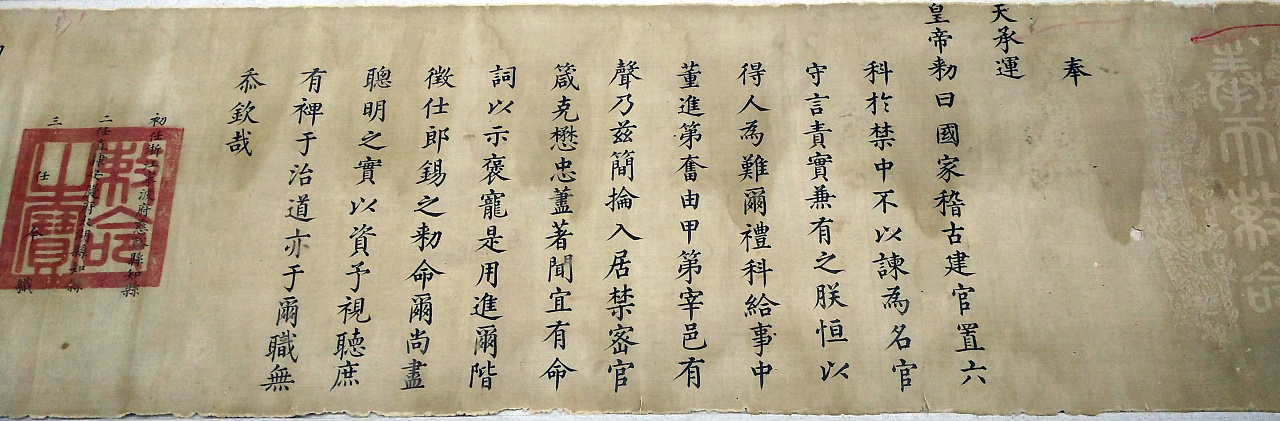 奉
天承運
皇帝勑曰國家稽古建官置六
科於禁中不以諫為名官
守言責實兼有之朕恒以
得人為難爾禮科給事中
董進第奮由甲第宰邑有
聲乃兹簡掄入居禁密官
箴克懋忠藎著聞宜有命
詞以示褒寵是用進爾階
徵仕郎錫之勑命爾尚盡
聰明之實以資予視聽庶
有裨于治道亦于爾職無
忝欽哉
初任浙江府慈谿縣知縣
二任直隷府縣知縣
三任今職
敕命之寶